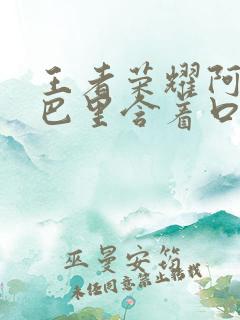 王者荣耀阿
巴里含着口
巫曼安筠
未经同意禁止转载